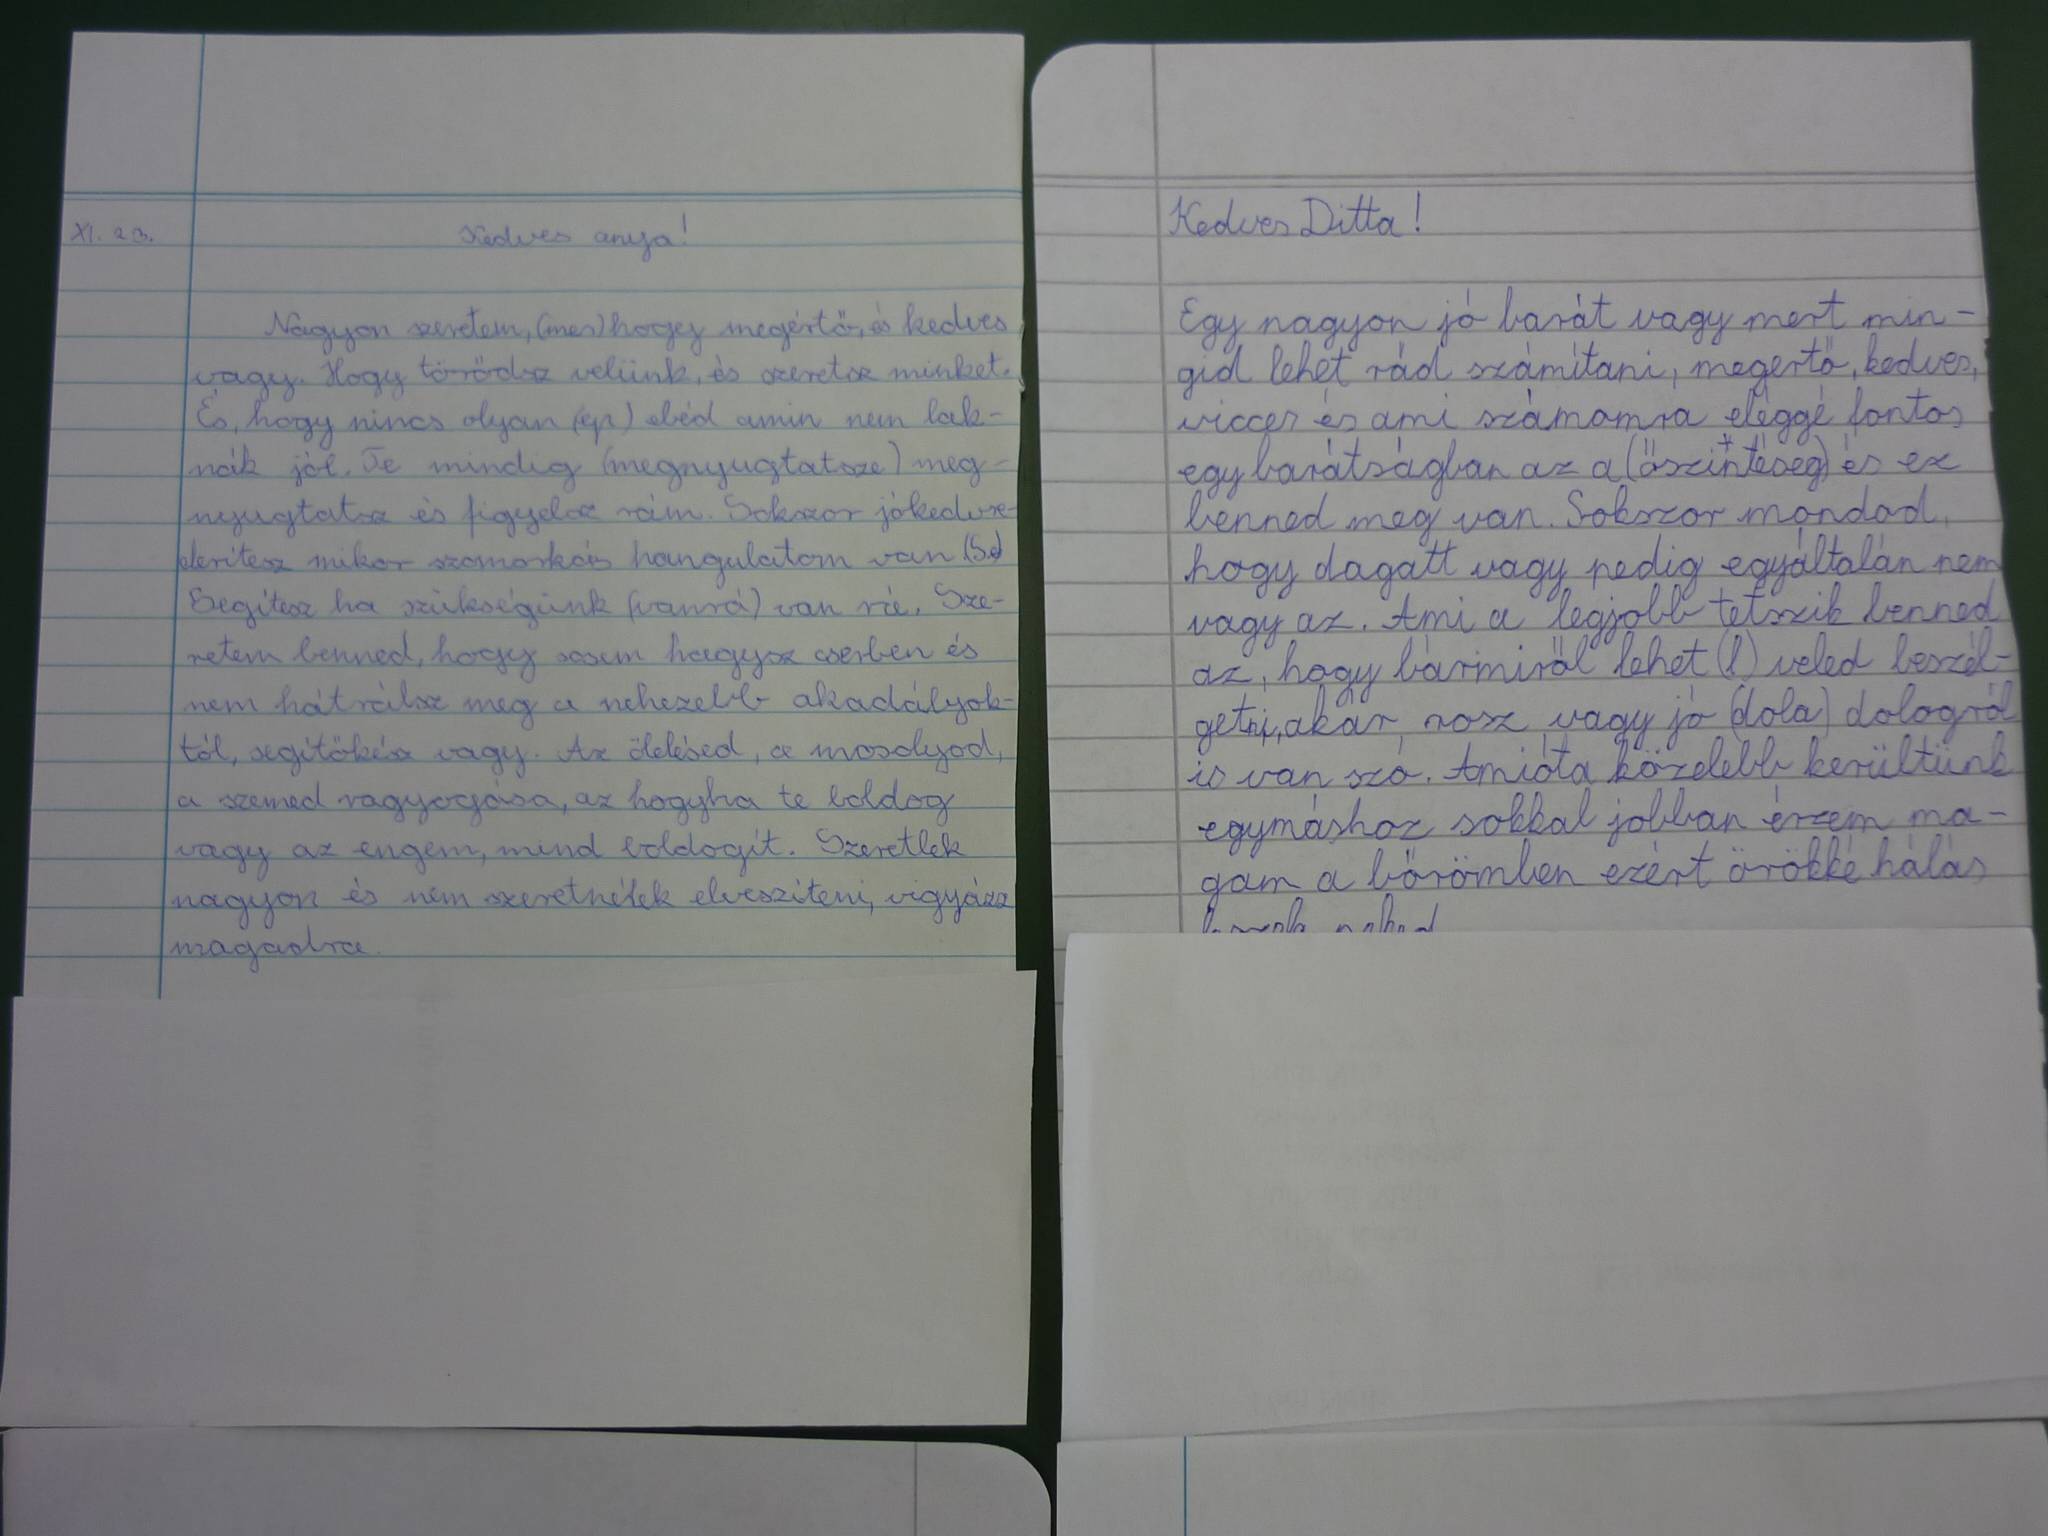 XI. 20.
Kedves anya!
Nagyon szeretem, (mer) hogy megértő, és kedves
vagy. Hogy törődsz velünk, és szeretsz minket.
És, hogy nincs olyan (ép) ebéd amin nem lak-
nák jól. Te mindig (megnyugtatsze) meg-
nyugtatsz és figyelsz rám. Sokszor jókedvre-
derítesz mikor szomorkás hangulatom van (Se)
Segítesz ha szükségünk (vanrá) van rá. Sze-
retem benned, hogy sosem hagysz cserben és
nem hátrálsz meg a nehezebb akadályok-
tól, segítőkész vagy. Az ölelésed, a mosolyod,
a szemed ragyogása, az hogyha te boldog
vagy az engem, mind boldogít. Szeretlek
nagyon és nem szeretnélek elveszíteni, vigyázz
magadra.
Kedves Ditta!
Egy nagyon jó barát vagy mert min-
gid lehet rád számítani, megértő, kedves,
vicces és ami számomra eléggé fontos
egy barátságban az a (őszinteség) és ez
benned meg van. Sokszor mondod,
hogy dagatt vagy pedig egyáltalán nem
vagy az. Ami a legjobb tetszik benned
az, hogy bármiről lehet (l) veled beszél-
getni, akár rosz vagy jó (dola) dologról
is van szó. Amióta közelebb kerültünk
egymáshoz sokkal jobban érzem ma-
gam a bőrömben ezért örökké hálás
leszek neked